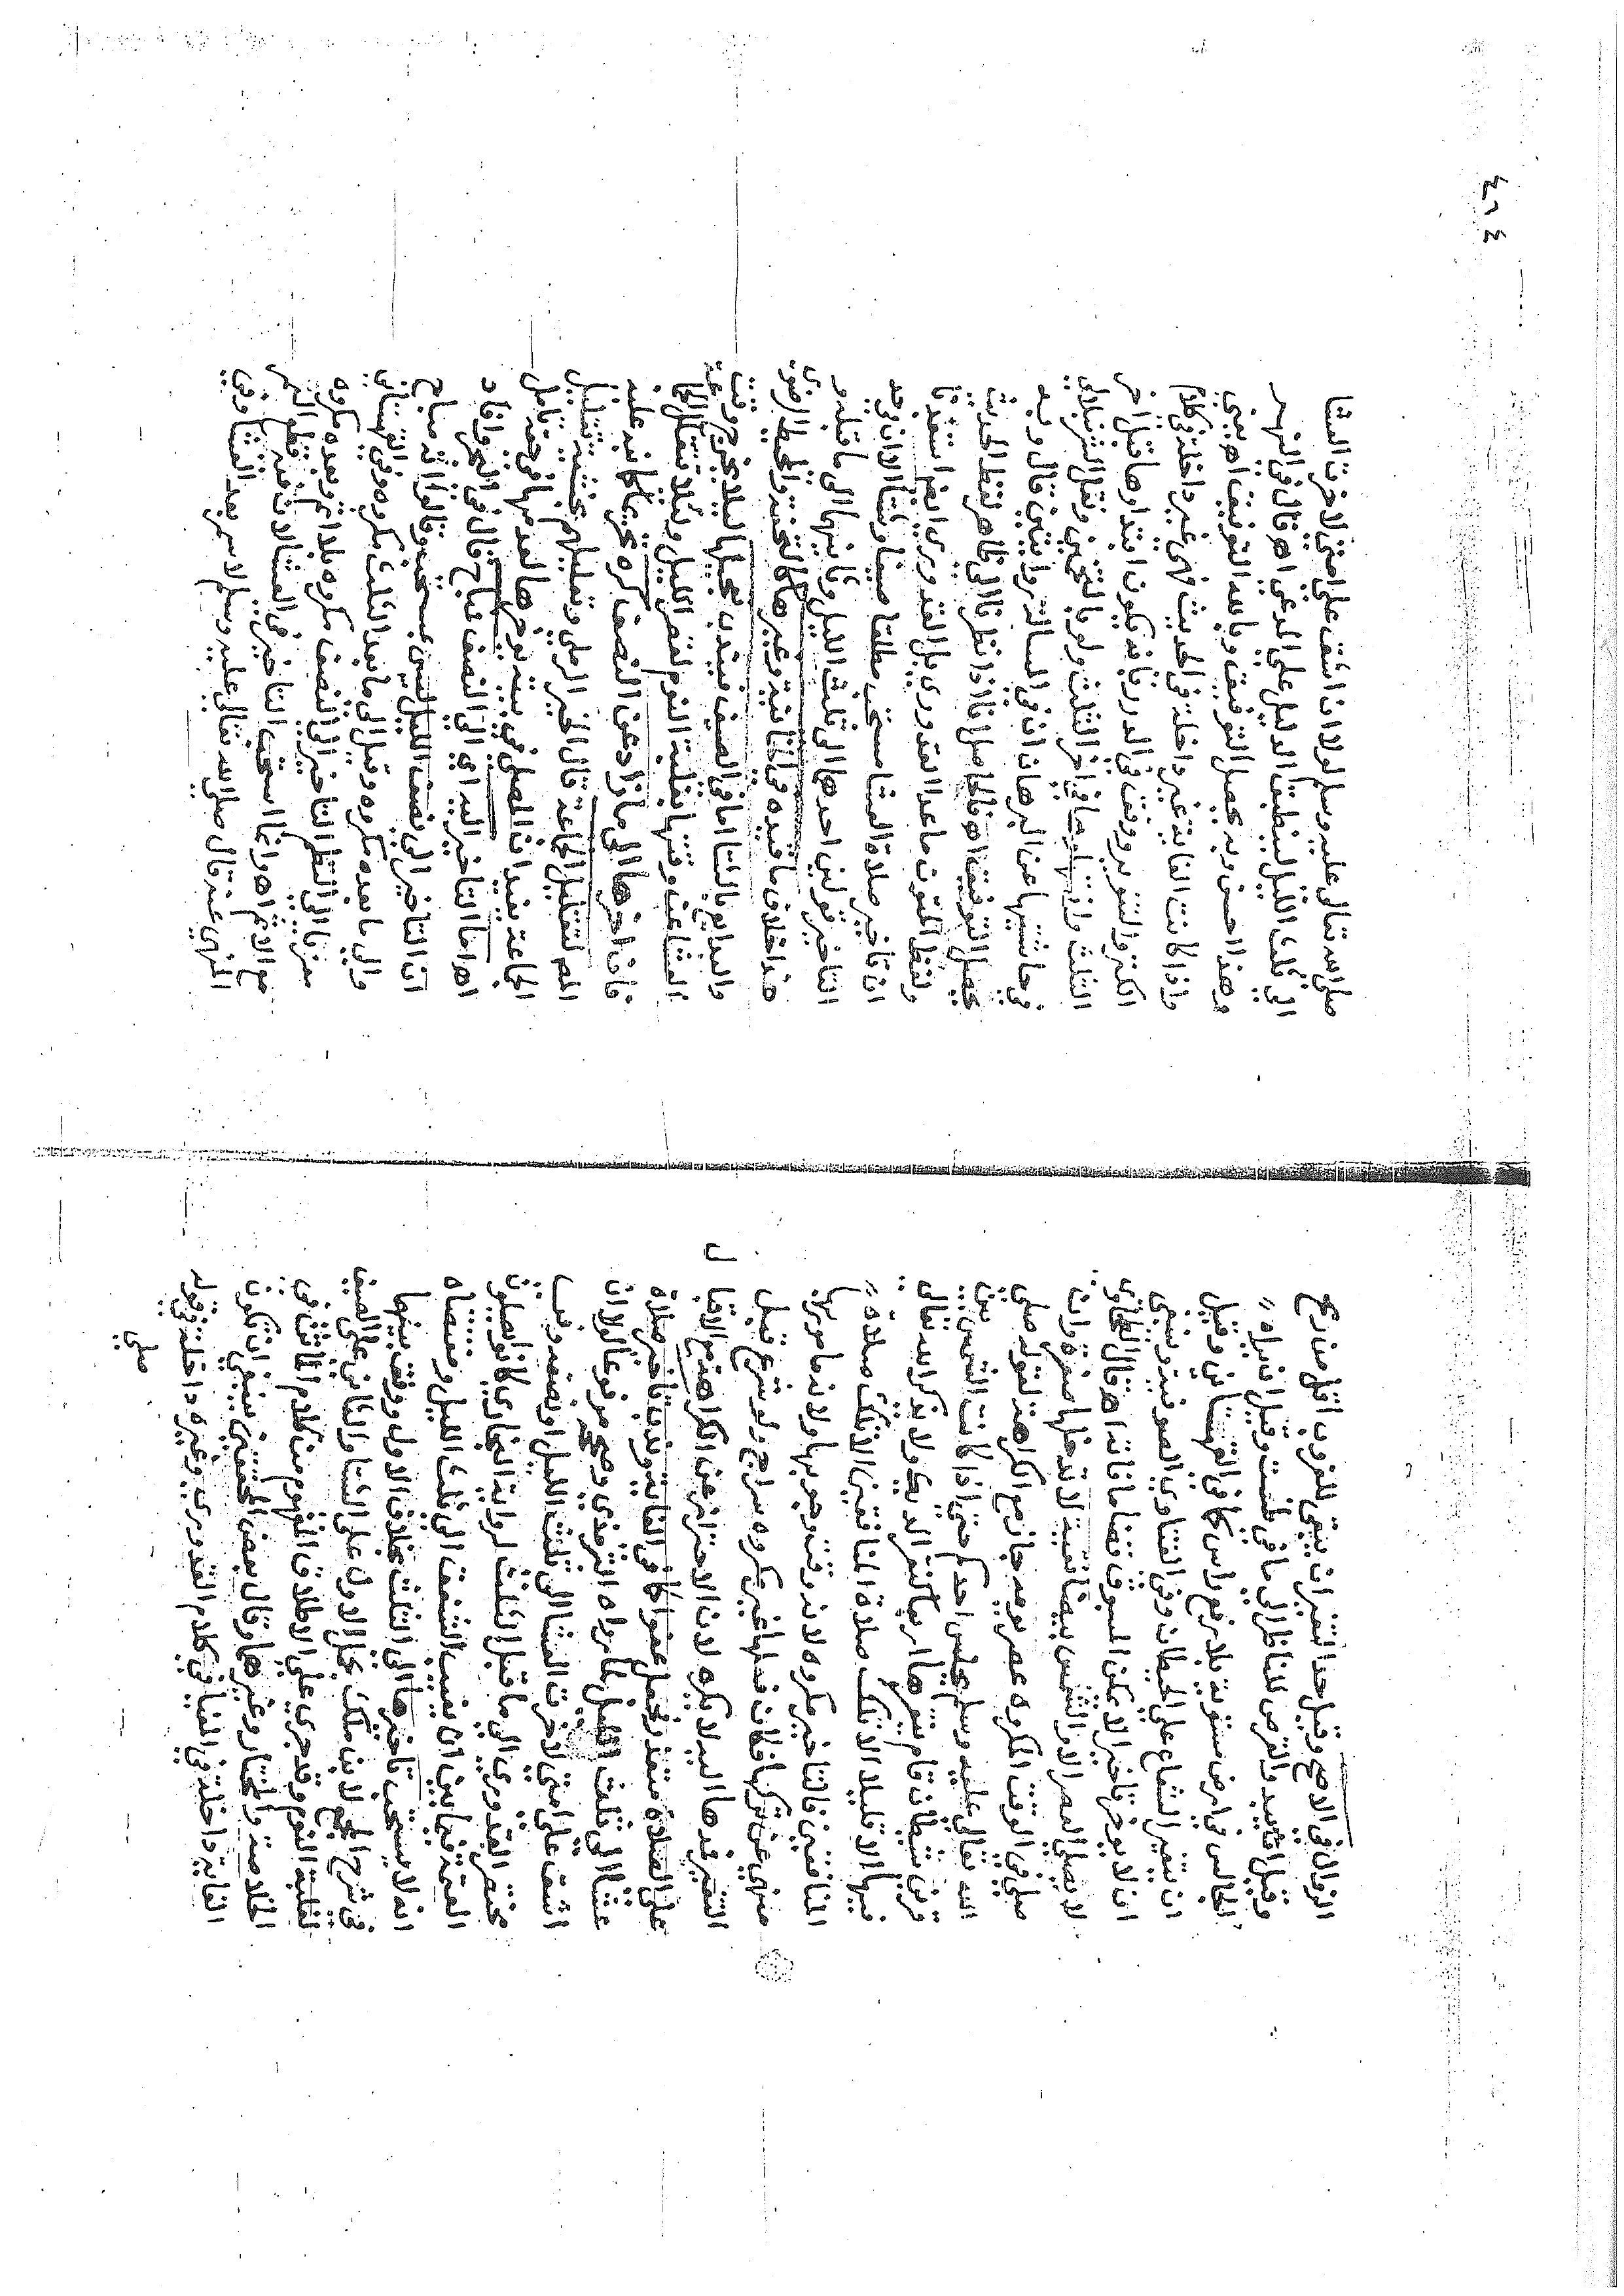 الزوال في الاصح وقيل حد التغير ان يبقى للغروب اقل من رمح
وقيل ان يبدو القرص للناظر الى ما في طست وقيل
الجالس في ارض مستوية بلا رفع راس كما في القهستاني وقيل
ان يتغير الشعاع على الحيطان وفي الفتاوى الصوفية وينبغي
ان لا يؤخر تاخيرا لا يمكن المسبوق قضا ما فاته اهـ قال الطحاوي
لا يصلى العصر الا والشمس بيضا نقية لا تدخلها صفرة وان
صلى في الوقت المكروه عصر يومه جاز مع الكراهة لقوله صلى
الله تعالى عليه وسلم يجلس احدكم حتى اذا كانت الشمس بين
قرني شيطان قام ينقرها اربعا كنقر الديك ولا يذكر الله تعالى
فيها الا قليلا الا تلك صلاة المنافقين الا تلك صلاة
المنافقين فالتاخير مكروه لانه وقت وجوبها ولانه مامور بها
منهي عن تركها فكان فعلها غير مكروه سراج ولو شرع قبل
التغير فمدها اليه لا يكره لان الاحتراز عن الكراهة مع الاقبال
على الصلاة متعذر فجعل عفوا كما في الغاية وندب تاخير صلاة
عشا الى ثلث الليل لما رواه الترمذي وصححه مرفوعا لولا ان
اشق على امتي لاخرت العشا الى ثلث الليل او نصفه وفي
مختصر القدوري الى ما قبل الثلث لرواية البخاري كانوا يصلون
العتمة فيما بين ان يغيب الشفق الى ثلث الليل ومقتضاه
انه لا يستحب تاخيرها الى الثلث بخلاف الاول ووفق بينهما
في شرح المجمع لابن ملك بحمل الاول على الشتا والثاني على الصيف
لغلبة النوم وقد جرى على الاطلاق المفهوم من كلام الماتن في
الخلاصة والمختار وغيرها وقال بعض المحققين ينبغي ان تكون
الغاية داخلة في المغيا في كلام القدوري وغيره داخلة في قوله
صلى
٤٦٤
صلى الله تعالى عليه وسلم لولا ان اشق على امتي لاخرت العشا
الى ثلث الليل لينطبق الدليل على المدعى اهـ قال في النهر
وهذا احسن وبه يحصل التوفيق وبالله التوفيق اهـ يعني
واذا كانت الغاية غير داخلة في الحديث فهي غير داخلة في كلام
الكنز والتنوير ووفق في الدرر بانه يكون ابتداوها قبل اخر
الثلث وانتهاوها في اخر الثلث ولو بالتخمين ونقل الشرنبلالي
في حاشيتها عن البرهان ان في المسالة روايتين قال وبه
يحصل التوفيق اهـ فالحاصل انا اذا نظرنا الى ظاهر لفظ الحديث
ولفظ المتون ما عدا القدوري بل القدوري ايضا استفدنا
ان تاخير صلاة العشا مستحب مطلقا صيفا وشتا الا ان في حد
التاخير قولين احدهما الى ثلث الليل وثانيهما الى ما قبله و
هذا خلاف ما قيده في الخانية وغيرها كالتحفة والمحيط الرضوي
والبدايع بالشتا اما في الصيف فيندب تعجيلها ليلا يخرج وقت
العشا عن وقتها بغلبة النوم لقصر الليل وليلا تتقلل الجماعة
فان اخرها الى ما زاد عن النصف كره تحريما كما نبه عليه
المص لتقليل الجماعة قال الخير الرملي وتعليلهم بخشية تقليل
الجماعة يفيد ان المصلي في بيته يوخرها لعدمها في حقه تامل
اهـ اما التاخير اليه اي الى النصف فمباح قال في البحر وافاد
ان التاخير الى نصف الليل ليس بمستحب وقالوا انه مباح
والى ما بعده مكروه وقيل الى ما بعد الثلث مكروه وفي القهستاني
معزيا الى النظم التاخير الى النصف مكروه بلا اثم وبعده مكروه
مع الاثم اهـ وانما استحب التاخير في العشا لان فيه قطع السمر
المنهي عنه قال صلى الله تعالى عليه وسلم لا سمر بعد العشا وفي